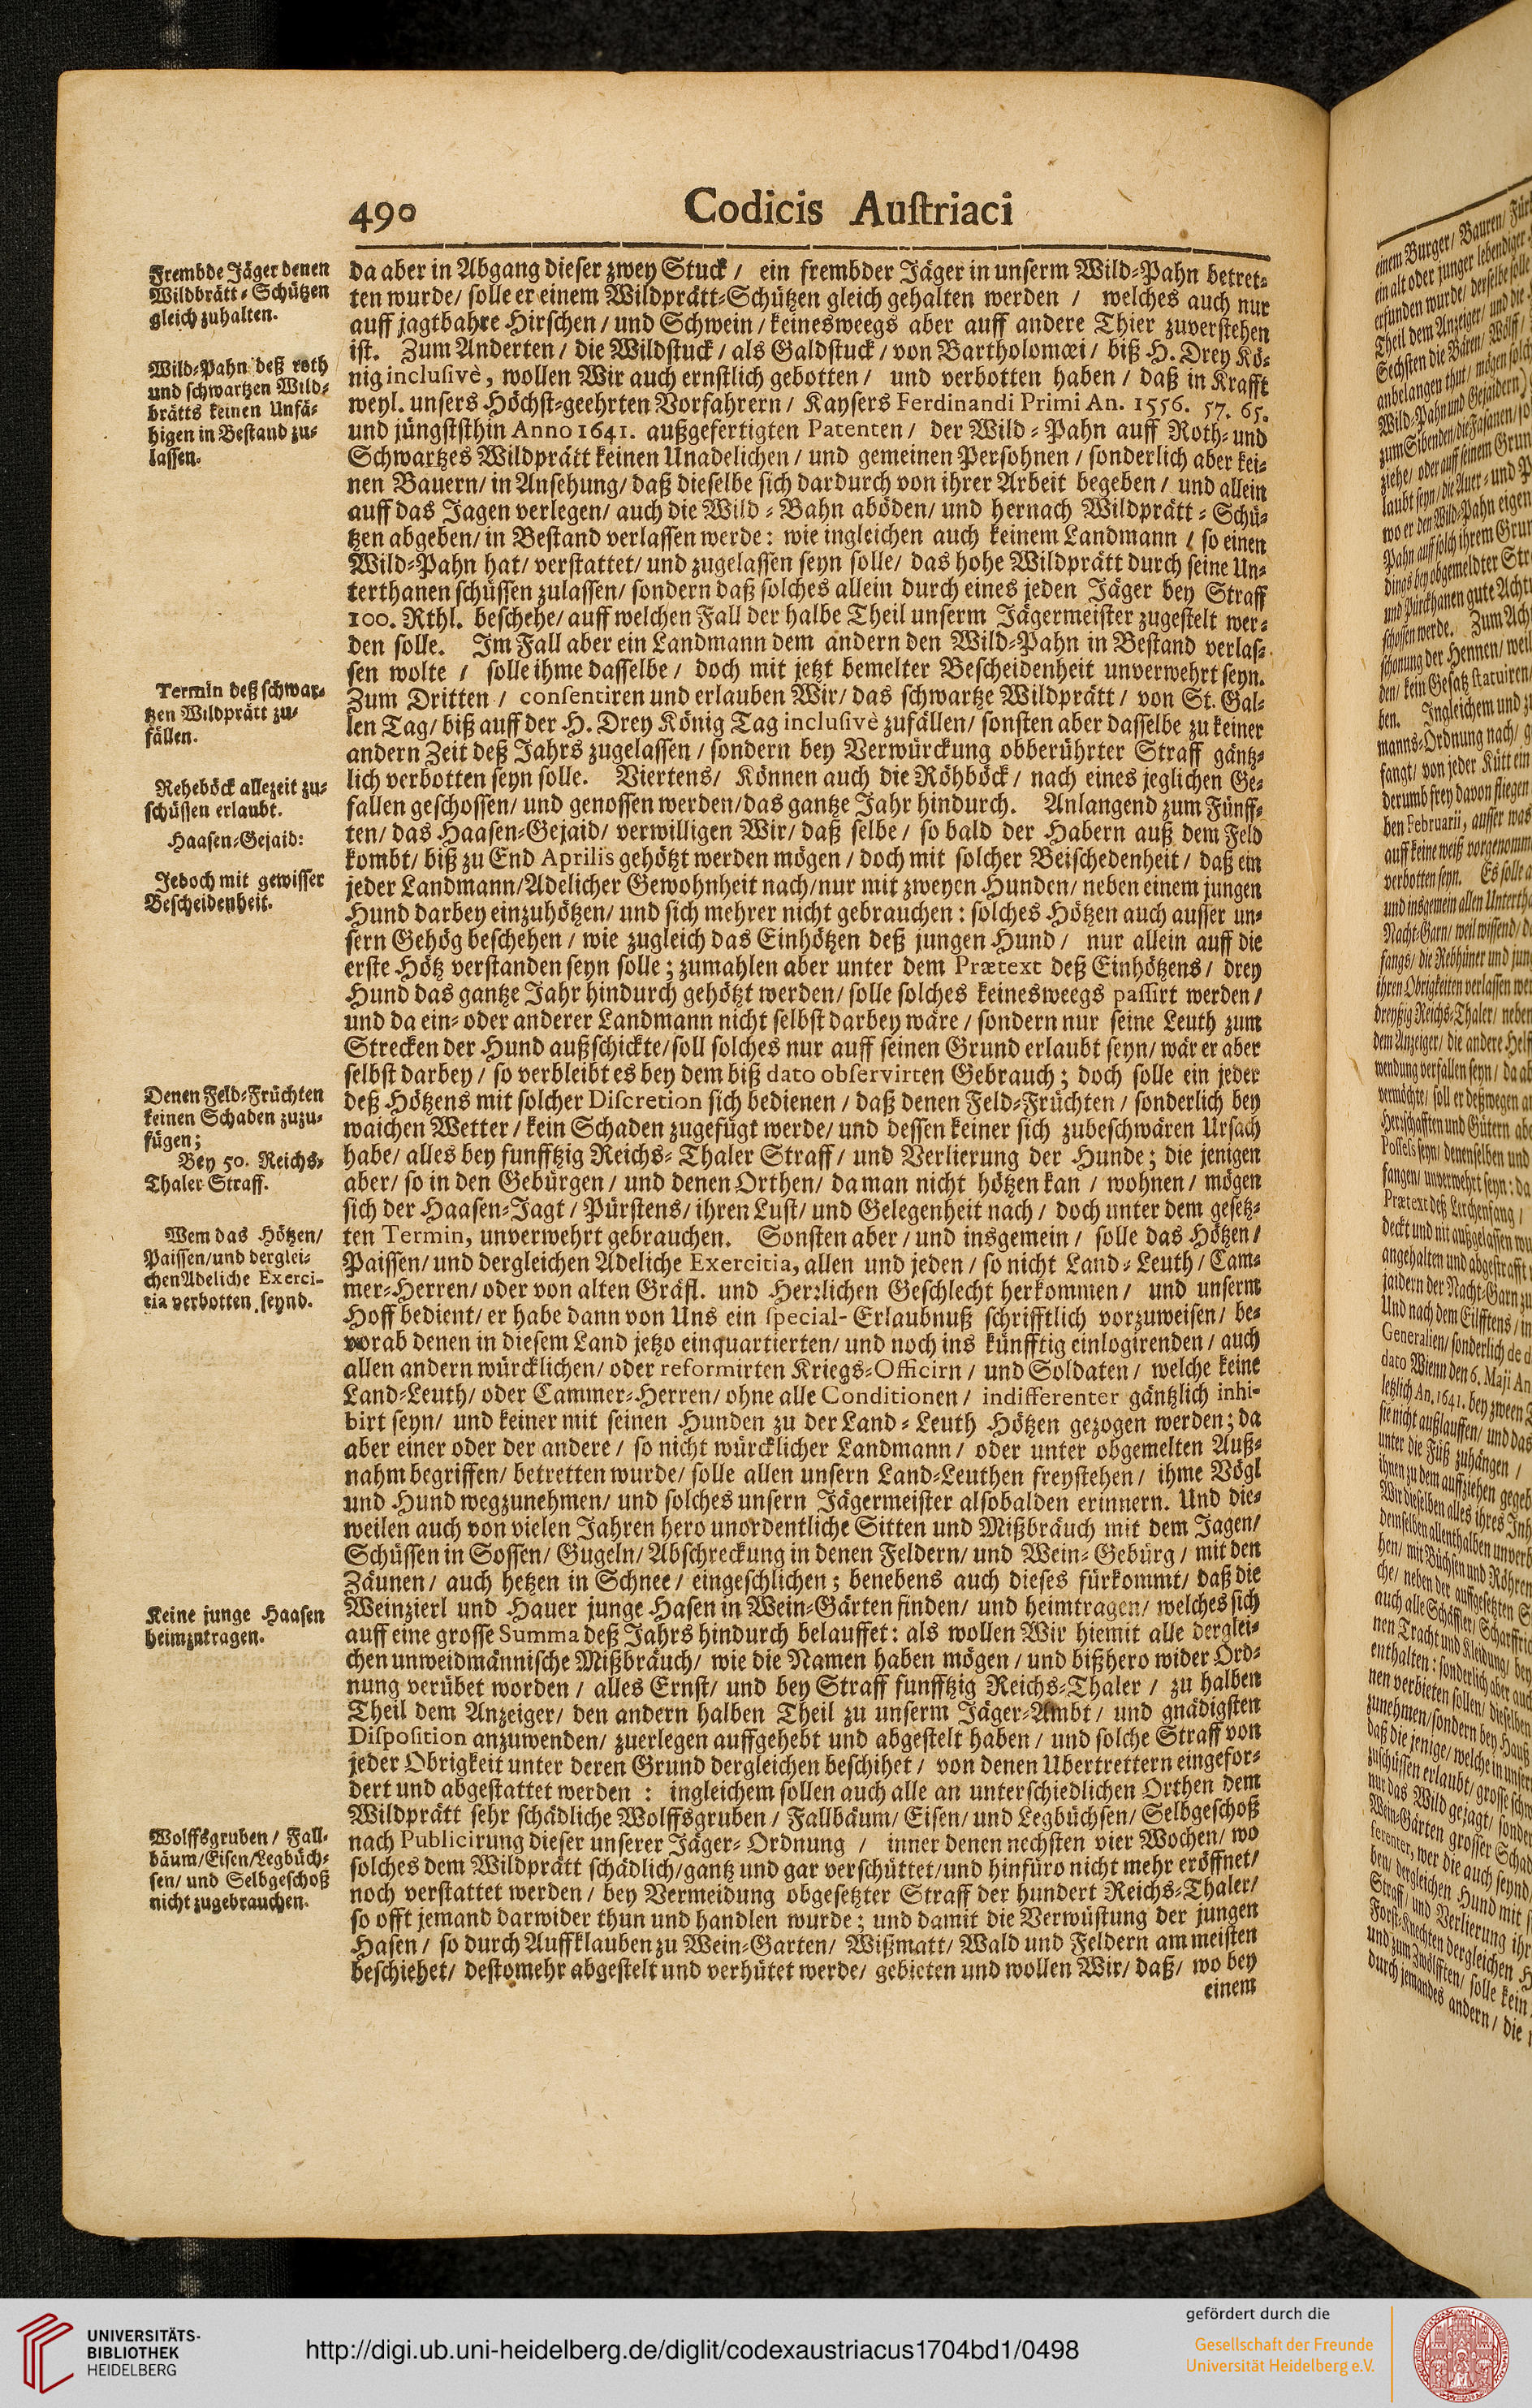 490 Codicis Auſtriaci
Frembde Jäger denen
Wildbrätt-Schützen
gleich zuhalten.
Wild-Pahn deß roth
und schwartzen Wild-
brätts keinen Unfä-
higen in Bestand zu-
lassen.
Termin deß schwar-
tzen Wildprätt zu-
fällen.
Reheböck allezeit zu-
schüssen erlaubt.
Haasen-Gejaid:
Jedoch mit gewisser
Bescheidenheit.
Denen Feld-Früchten
keinen Schaden zuzu-
fügen;
Bey 50. Reichs-
Thaler Straff.
Wem das Hötzen/
Paissen/und derglei-
chen Adeliche Exerci-
tia verbotten seynd.
Keine junge Haasen
heimzutragen.
Wolffsgruben / Fall-
bäum/Eisen/Legbüch-
sen/ und Selbgeschoß
nicht zugebrauchen.
da aber in Abgang dieser zwey Stuck / ein frembder Jäger in unserm Wild-Pahn betret-
ten wurde/ solle er einem Wildprätt-Schützen gleich gehalten werden / welches auch nur
auff jagtbahre Hirschen / und Schwein / keinesweegs aber auff andere Thier zuverstehen
ist. Zum Anderten / die Wildstuck / als Galdstuck / von Bartholomæi / biß H. Drey Kö-
nig incluſivè, wollen Wir auch ernstlich gebotten / und verbotten haben / daß in Krafft
weyl. unsers Höchst-geehrten Vorfahrern / Kaysers Ferdinandi Primi An. 1556. 57. 65.
und jüngststhin Anno 1641. außgefertigten Patenten / der Wild-Pahn auff Roth- und
Schwartzes Wildprätt keinen Unadelichen / und gemeinen Persohnen / sonderlich aber kei-
nen Bauern/ in Ansehung/ daß dieselbe sich dardurch von ihrer Arbeit begeben / und allein
auff das Jagen verlegen/ auch die Wild-Bahn aböden/ und hernach Wildprätt-Schü-
tzen abgeben/ in Bestand verlassen werde: wie ingleichen auch keinem Landmann / so einen
Wild-Pahn hat/ verstattet/ und zugelassen seyn solle/ das hohe Wildprätt durch seine Un-
terthanen schüssen zulassen/ sondern daß solches allein durch eines jeden Jäger bey Straff
100. Rthl. beschehe/ auff welchen Fall der halbe Theil unserm Jägermeister zugestelt wer-
den solle. Im Fall aber ein Landmann dem andern den Wild-Pahn in Bestand verlas-
sen wolte / solle ihme dasselbe / doch mit jetzt bemelter Bescheidenheit unverwehrt seyn.
Zum Dritten / conſentiren und erlauben Wir/ das schwartze Wildprätt / von St. Gal-
len Tag/ biß auff der H. Drey König Tag incluſivè zufällen/ sonsten aber dasselbe zu keiner
andern Zeit deß Jahrs zugelassen / sondern bey Verwürckung obberührter Straff gäntz-
lich verbotten seyn solle. Viertens/ Können auch die Röhböck / nach eines jeglichen Ge-
fallen geschossen/ und genossen werden/das gantze Jahr hindurch. Anlangend zum Fünff-
ten/ das Haasen-Gejaid/ verwilligen Wir/ daß selbe / so bald der Habern auß dem Feld
kombt/ biß zu End Aprilis gehötzt werden mögen / doch mit solcher Beischedenheit / daß ein
jeder Landmann/Adelicher Gewohnheit nach/nur mit zweyen Hunden/ neben einem jungen
Hund darbey einzuhötzen/ und sich mehrer nicht gebrauchen: solches Hötzen auch ausser un-
sern Gehög beschehen / wie zugleich das Einhötzen deß jungen Hund / nur allein auff die
erste Hötz verstanden seyn solle; zumahlen aber unter dem Prætext deß Einhötzens / drey
Hund das gantze Jahr hindurch gehötzt werden/ solle solches keinesweegs paſſirt werden /
und da ein- oder anderer Landmann nicht selbst darbey wäre / sondern nur seine Leuth zum
Strecken der Hund außschickte/soll solches nur auff seinen Grund erlaubt seyn/ wär er aber
selbst darbey / so verbleibt es bey dem biß dato obſervirten Gebrauch; doch solle ein jeder
deß Hötzens mit solcher Diſcretion sich bedienen / daß denen Feld-Früchten / sonderlich bey
waichen Wetter / kein Schaden zugefügt werde/ und dessen keiner sich zubeschwären Ursach
habe/ alles bey funfftzig Reichs-Thaler Straff / und Verlierung der Hunde; die jenigen
aber/ so in den Gebürgen / und denen Orthen/ da man nicht hötzen kan / wohnen / mögen
sich der Haasen-Jagt / Pürstens/ ihren Lust/ und Gelegenheit nach / doch unter dem gesetz-
ten Termin, unverwehrt gebrauchen. Sonsten aber / und insgemein / solle das Hötzen /
Paissen/ und dergleichen Adeliche Exercitia, allen und jeden / so nicht Land-Leuth / Cam-
mer-Herren/ oder von alten Gräfl. und Herzlichen Geschlecht herkommen / und unserm
Hoff bedient/ er habe dann von Uns ein ſpecial-Erlaubnuß schrifftlich vorzuweisen / be-
vorab denen in diesem Land jetzo einquartierten/ und noch ins künfftig einlogirenden / auch
allen andern würcklichen/ oder reformirten Kriegs-Officirn / und Soldaten / welche keine
Land-Leuth/ oder Cammer-Herren/ ohne alle Conditionen / indifferenter gäntzlich inhi-
birt seyn/ und keiner mit seinen Hunden zu der Land-Leuth Hötzen gezogen werden; da
aber einer oder der andere / so nicht würcklicher Landmann / oder unter obgemelten Auß-
nahm begriffen/ betretten wurde/ solle allen unsern Land-Leuthen freystehen / ihme Vögl
und Hund wegzunehmen/ und solches unsern Jägermeister alsobalden erinnern. Und die-
weilen auch von vielen Jahren hero unordentliche Sitten und Mißbräuch mit dem Jagen/
Schüssen in Sossen/ Gugeln/ Abschreckung in denen Feldern/ und Wein-Gebürg / mit den
Zäunen / auch hetzen in Schnee / eingeschlichen; benebens auch dieses fürkommt/ daß die
Weinzierl und Hauer junge Hasen in Wein-Gärten finden/ und heimtragen/ welches sich
auff eine grosse Summa deß Jahrs hindurch belauffet: als wollen Wir hiemit alle derglei-
chen unweidmännische Mißbräuch/ wie die Namen haben mögen / und bißhero wider Ord-
nung verübet worden / alles Ernst/ und bey Straff funfftzig Reichs-Thaler / zu halben
Theil dem Anzeiger/ den andern halben Theil zu unserm Jäger-Ambt / und gnädigsten
Diſpoſition anzuwenden/ zuerlegen auffgehebt und abgestelt haben / und solche Straff von
jeder Obrigkeit unter deren Grund dergleichen beschihet / von denen Ubertrettern eingefor-
dert und abgestattet werden : ingleichem sollen auch alle an unterschiedlichen Orthen dem
Wildprätt sehr schädliche Wolffsgruben / Fallbäum/ Eisen/ und Legbüchsen/ Selbgeschoß
nach Publicirung dieser unserer Jäger-Ordnung / inner denen nechsten vier Wochen/ wo
solches dem Wildprätt schädlich/gantz und gar verschüttet/und hinfüro nicht mehr eröffnet/
noch verstattet werden / bey Vermeidung obgesetzter Straff der hundert Reichs-Thaler/
so offt jemand darwider thun und handlen wurde; und damit die Verwüstung der jungen
Hasen / so durch Auffklauben zu Wein-Garten/ Wißmatt/ Wald und Feldern am meisten
beschiehet/ destomehr abgestelt und verhütet werde/ gebieten und wollen Wir/ daß/ wo bey
einem
UNIVERSITÄTS-
BIBLIOTHEK
HEIDELBERG
http://digi.ub.uni-heidelberg.de/diglit/codexaustriacus1704bd1/0498
gefördert durch die
Gesellschaft der Freunde
Universität Heidelberg e.V.